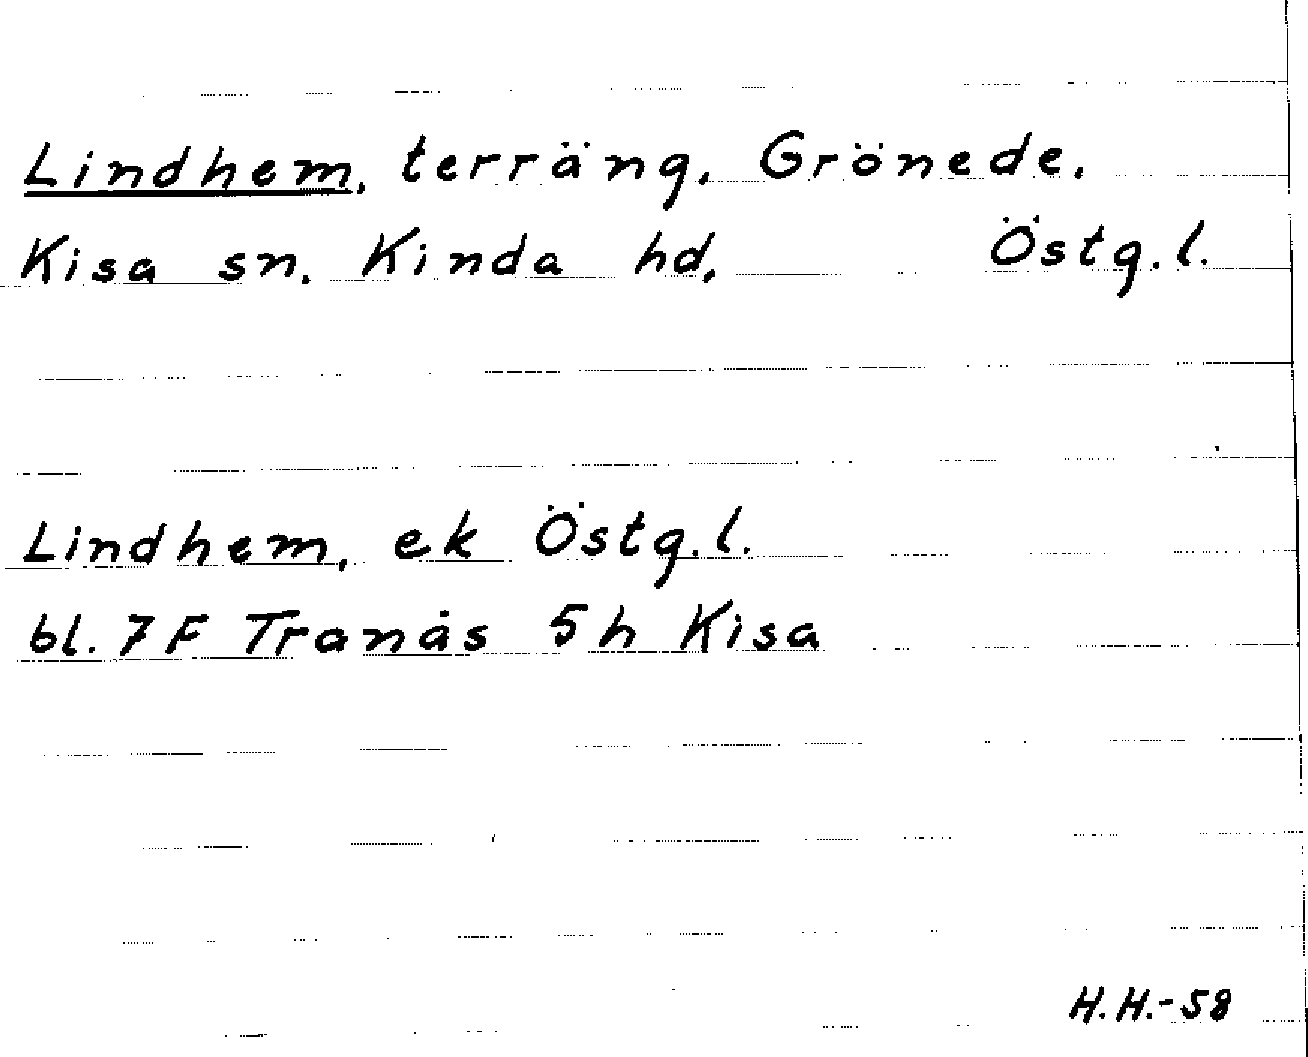 Lindhem, terräng, Grönede,
Kisa sn. Kinda hd, Östg.l.
Lindhem, ek Östg.l.
bl. 7 F Tranås 5 h Kisa
H.H.-58